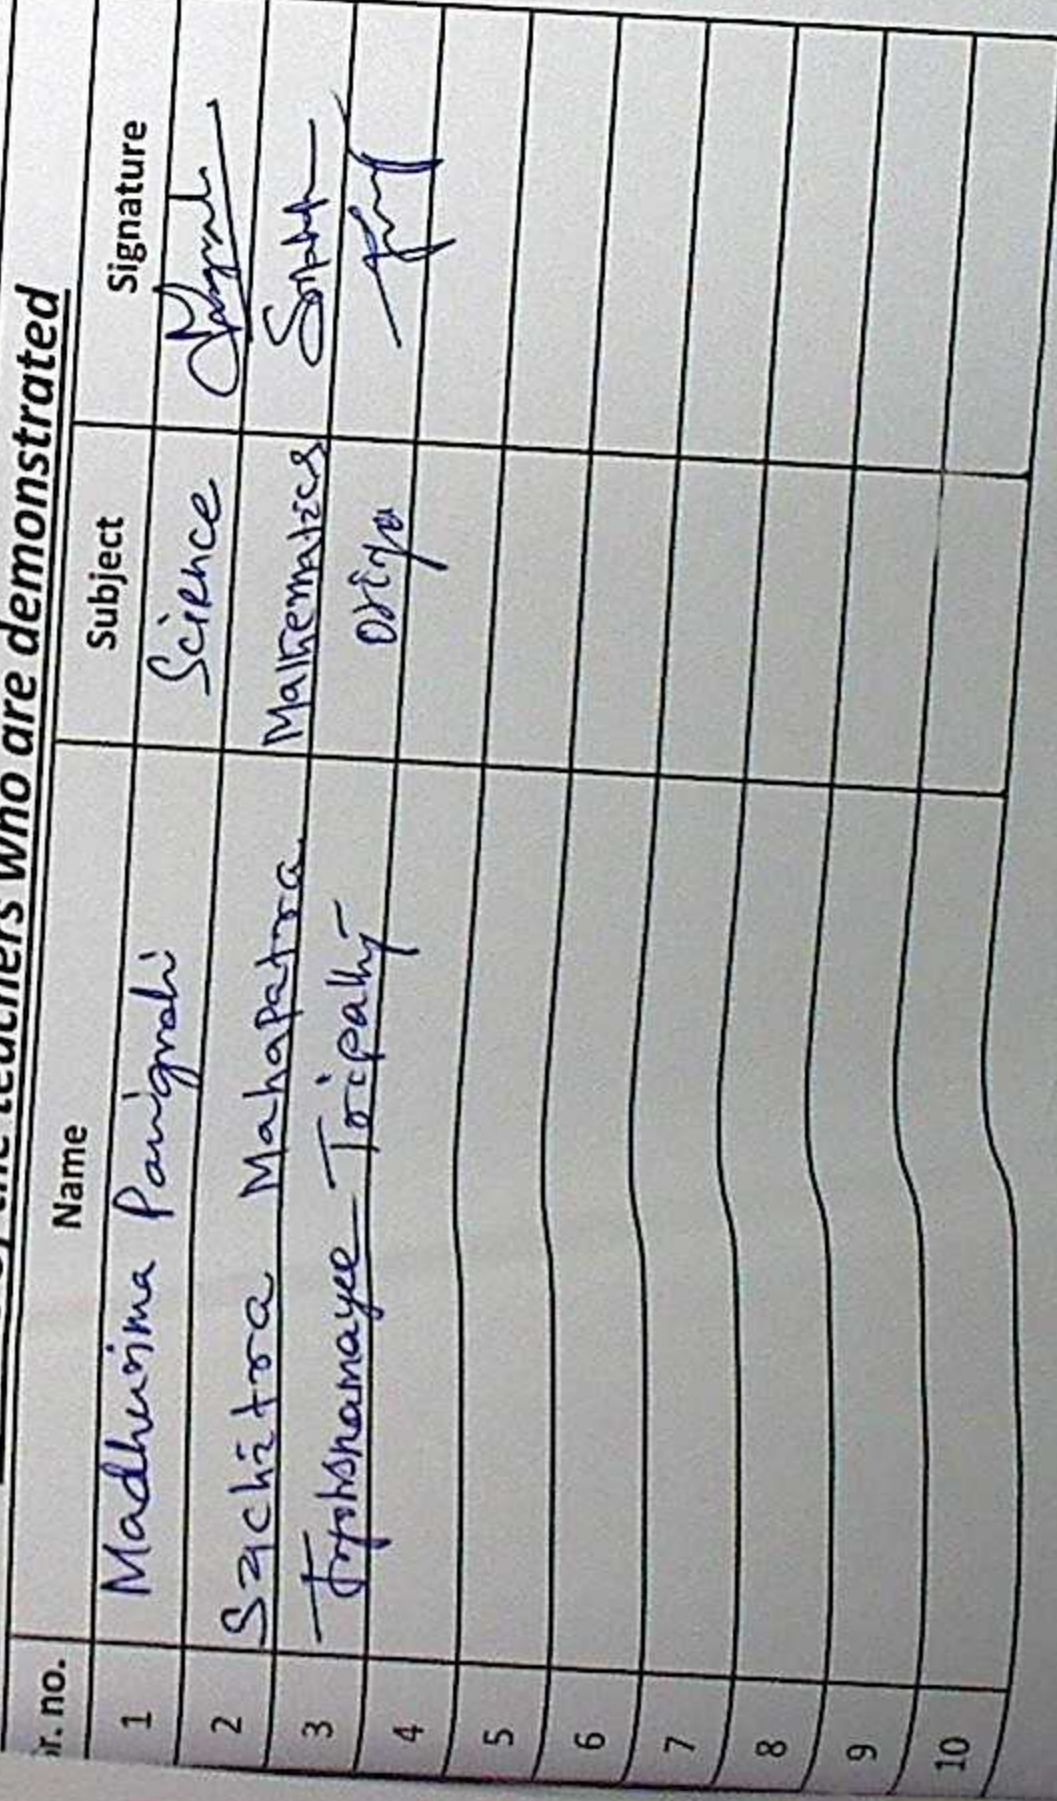 the teachers who are demonstrated
r. no. Name Subject Signature
1 Madhurima Panigrahi Science
2 Suchitra Mahapatra Mathematics
3 Jyotsnamayee Tripathy Oriya
4
5
6
7
8
9
10